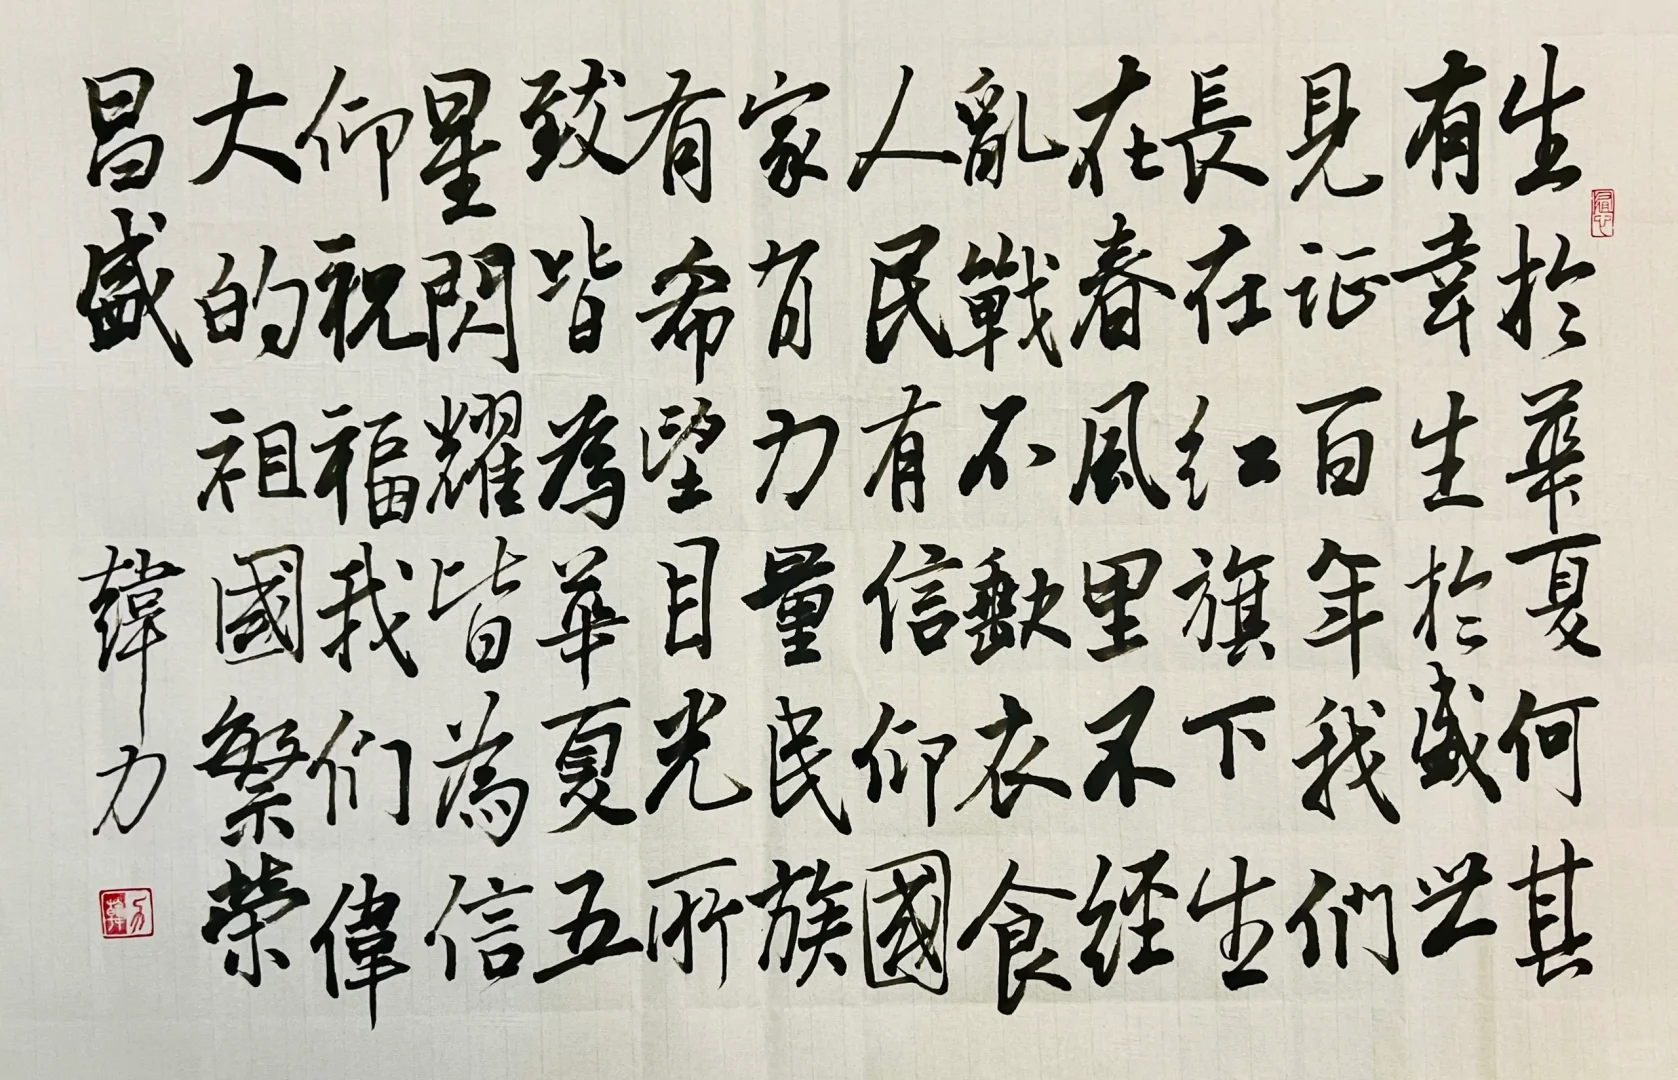 生於華夏何其
有幸生於盛世
見证百年我们
長在红旗下生
在春風里不經
亂戰不缺衣食
人民有信仰國
家有力量民族
有希望目光所
致皆為華夏五
星閃耀皆為信
仰祝福我们偉
大的祖國繁榮
昌盛
韓力